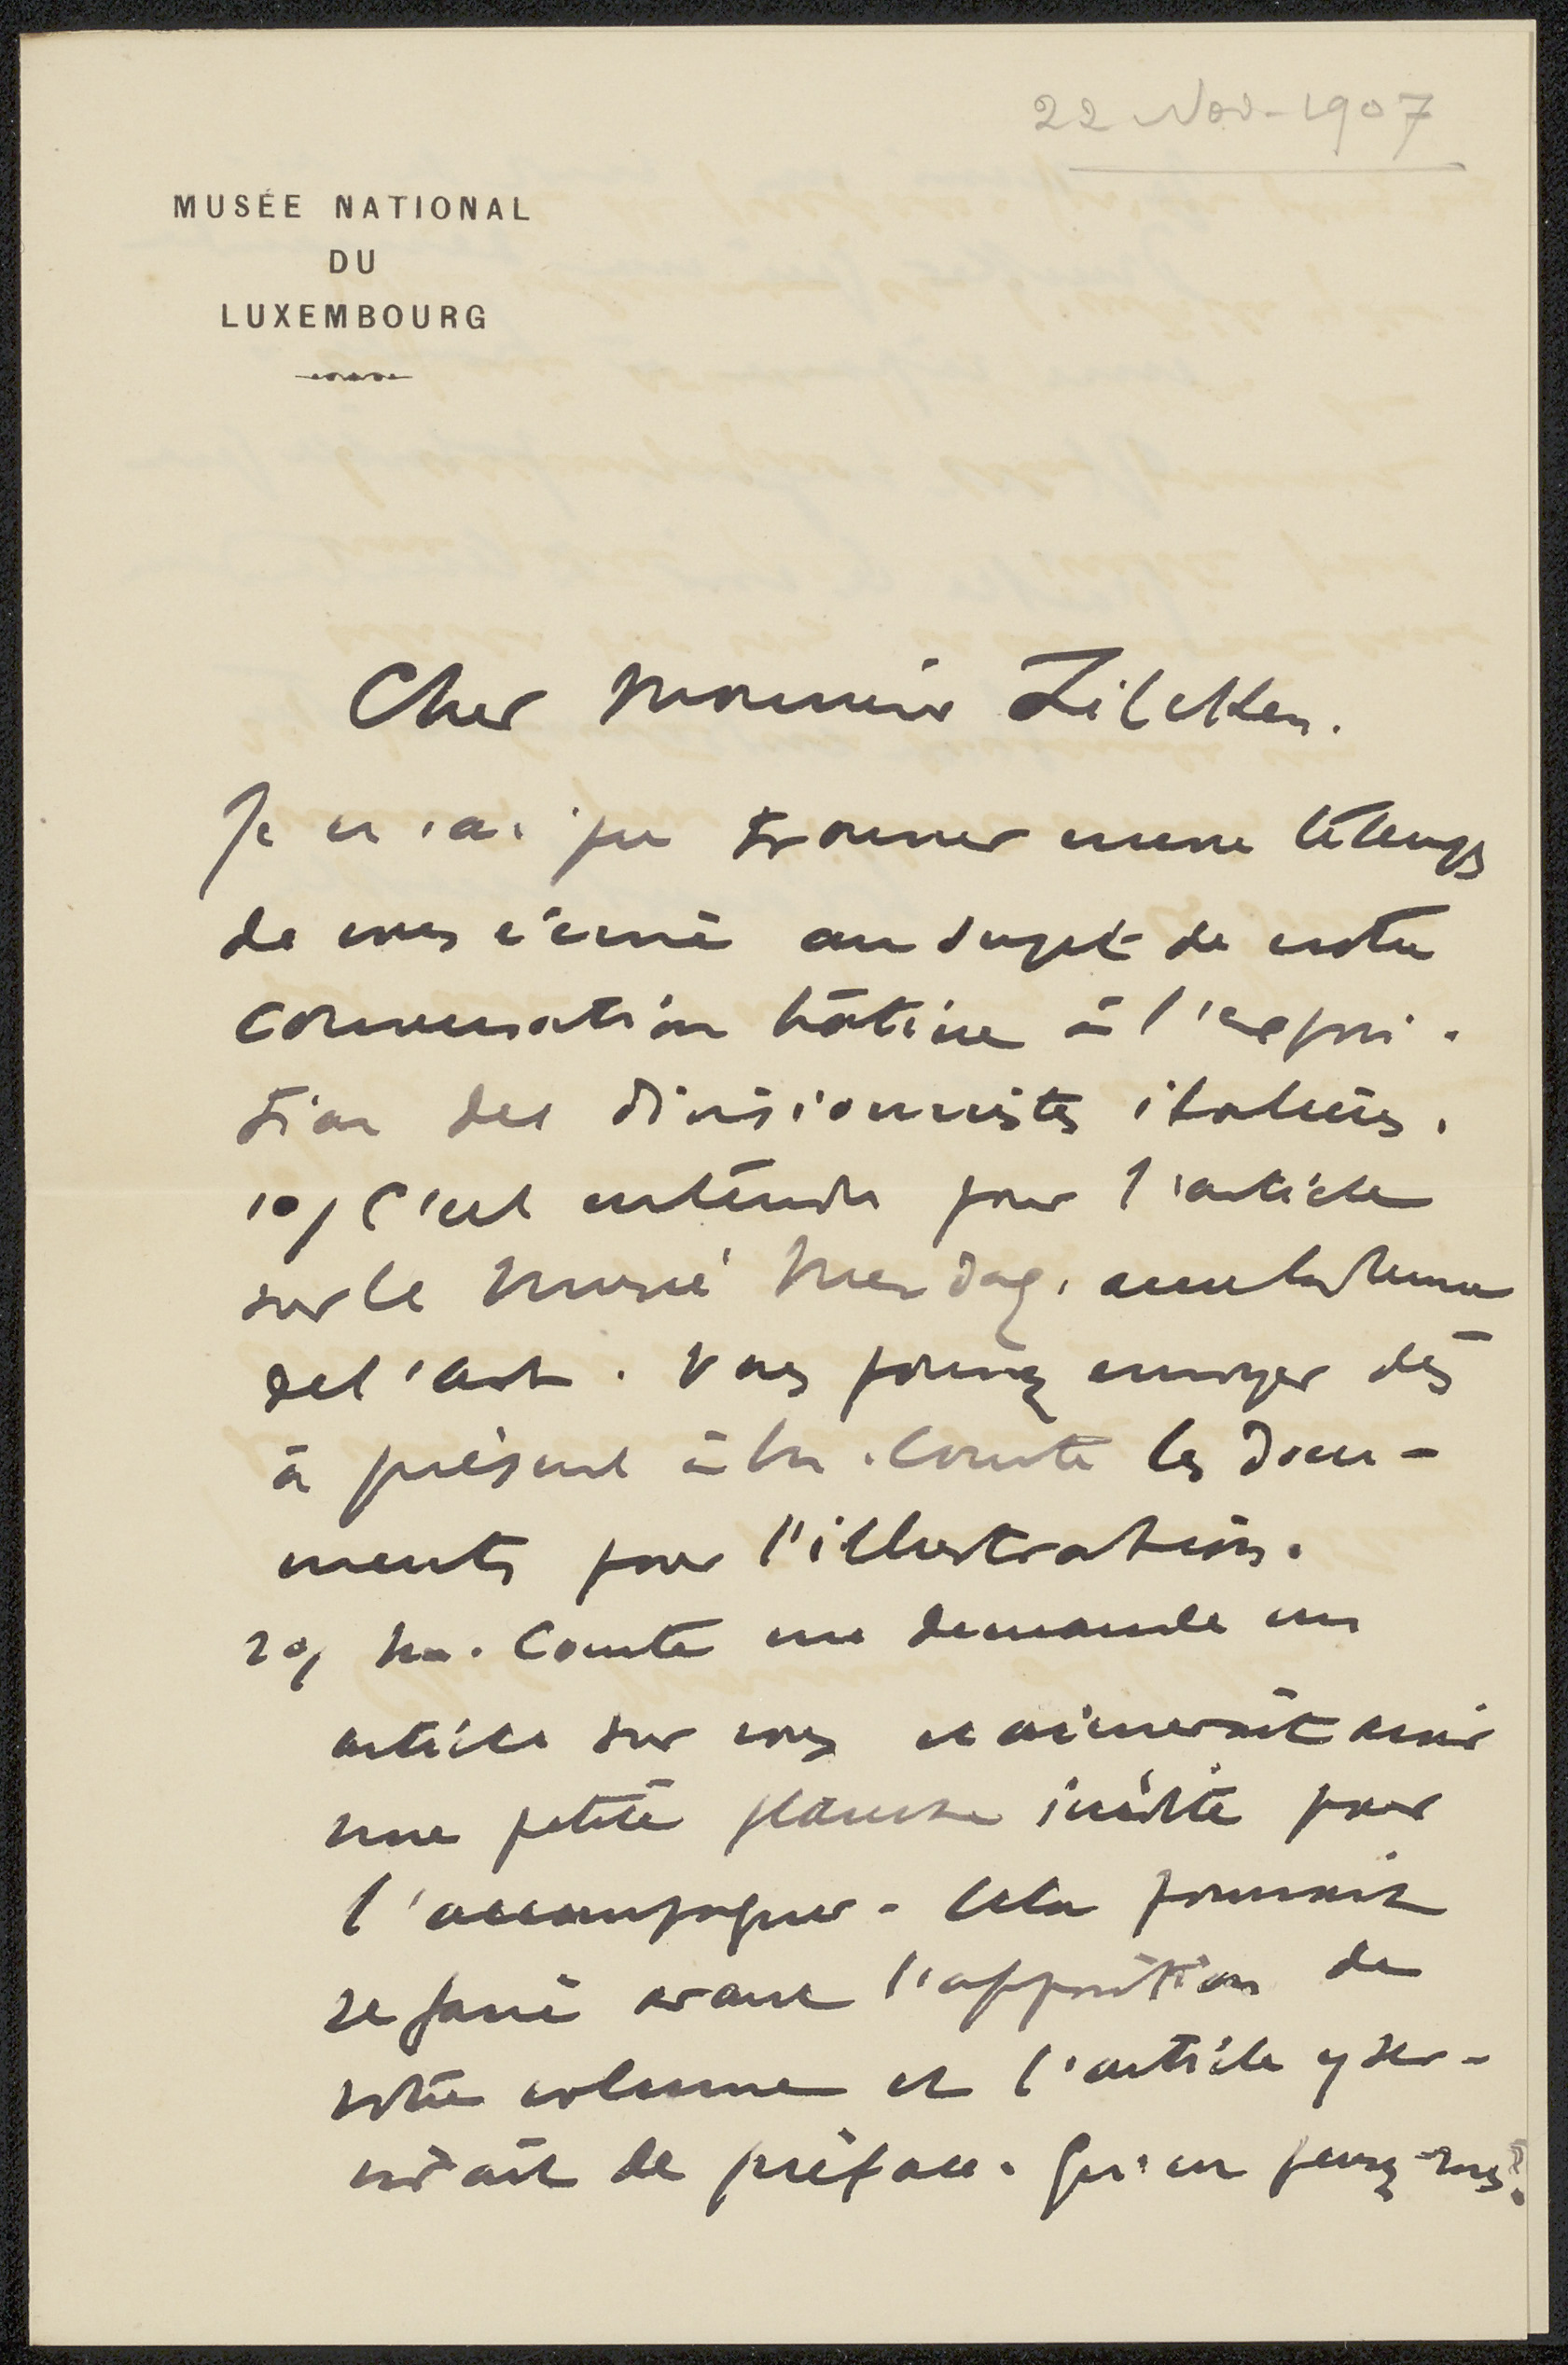 22 Nov - 1907
MUSÉE NATIONAL
DU
LUXEMBOURG
Cher Monsieur Zilcken.
Je n'ai pu trouver encore le temps
de vous écrire au sujet de notre
conversation hâtive à l'exposi-
tion des divisionnistes italiens.
1o/ C'est entendu pour l'article
sur le Musée Mesdag, avec la Revue
de l'art. Vous pouvez envoyer dès
à présent à M. Comte les docu-
ments pour l'illustration.
2o/ M. Comte me demande un
article sur vous et aimerait avoir
une petite planche inédite pour
l'accompagner - Cela pourrait
se faire avant l'apparition de
votre volume et l'article y ser-
virait de préface. Qu'en pensez-vous?